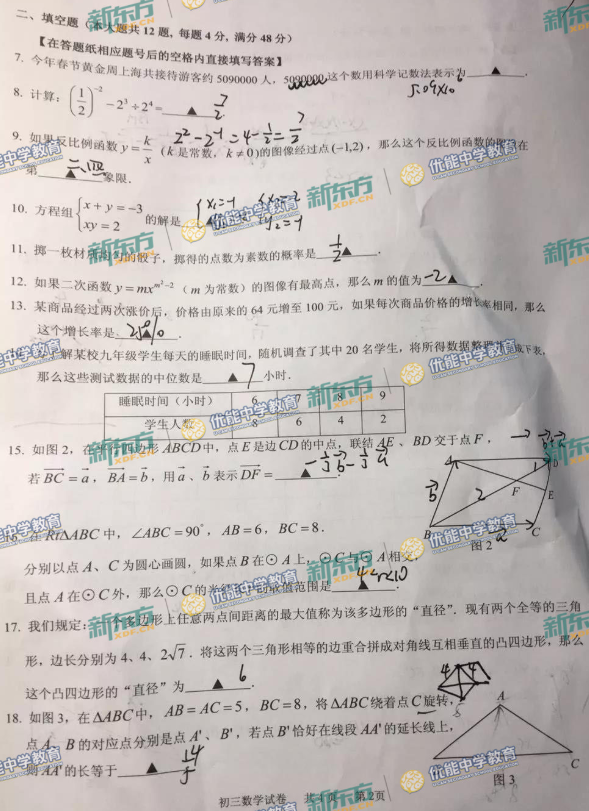 二、填空题（本大题共 12 题, 每题 4 分, 满分 48 分）
【在答题纸相应题号后的空格内直接填写答案】
7. 今年春节黄金周上海共接待游客约 5090000 人，5090000 这个数用科学记数法表示为 ▲ .
5.09×10⁶
8. 计算：(1/2)⁻² − 2³ ÷ 2⁴ = ▲ 7/2 .
2² − 2⁻¹ = 4 − 1/2 = 7/2
9. 如果反比例函数 y = k/x （k 是常数，k ≠ 0)的图像经过点 (−1,2)，那么这个反比例函数的图像在
第 二、四 ▲ 象限.
10. 方程组 { x + y = −3 xy = 2 的解是 { x₁=−1 { x₂=−2 y₂=−1
11. 掷一枚材质均匀的骰子，掷得的点数为素数的概率是 1/2 ▲ .
12. 如果二次函数 y = mx^(m²−2) （m 为常数）的图像有最高点，那么 m 的值为 −2 ▲ .
13. 某商品经过两次涨价后，价格由原来的 64 元增至 100 元，如果每次商品价格的增长率相同，那么
这个增长率是 25% ▲ .
解某校九年级学生每天的睡眠时间，随机调查了其中 20 名学生，将所得数据整理并制成下表，
那么这些测试数据的中位数是 ▲ 7 小时.
睡眠时间（小时） 6 7 8 9
学生人数 8 6 4 2
15. 如图 2，在平行四边形 ABCD 中，点 E 是边 CD 的中点，联结 AE 、 BD 交于点 F ，
若 BC = a ， BA = b ，用 a 、 b 表示 DF = ▲ −1/3 b − 1/3 a
A D
b 1
2 F E
B a C
图 2
16. 在 Rt△ABC 中，∠ABC = 90°，AB = 6，BC = 8.
分别以点 A、C 为圆心画圆，如果点 B 在⊙A 上，⊙C 与⊙A 相交，
且点 A 在⊙C 外，那么⊙C 的半径长 r 的取值范围是 4<r<10 ▲ .
17. 我们规定：一个多边形上任意两点间距离的最大值称为该多边形的“直径”. 现有两个全等的三角
形，边长分别为 4、4、2√7 . 将这两个三角形相等的边重合拼成对角线互相垂直的凸四边形，那么
这个凸四边形的“直径”为 ▲ 6 .
4 4
18. 如图 3，在 △ABC 中， AB = AC = 5，BC = 8，将 △ABC 绕着点 C 旋转，
点 A、B 的对应点分别是点 A'、B'，若点 B' 恰好在线段 AA' 的延长线上，
则 AA' 的长等于 ▲ 14/5
A
C
图 3
初三数学试卷 共4页 第2页
新东方
XDF.CN
优能中学教育